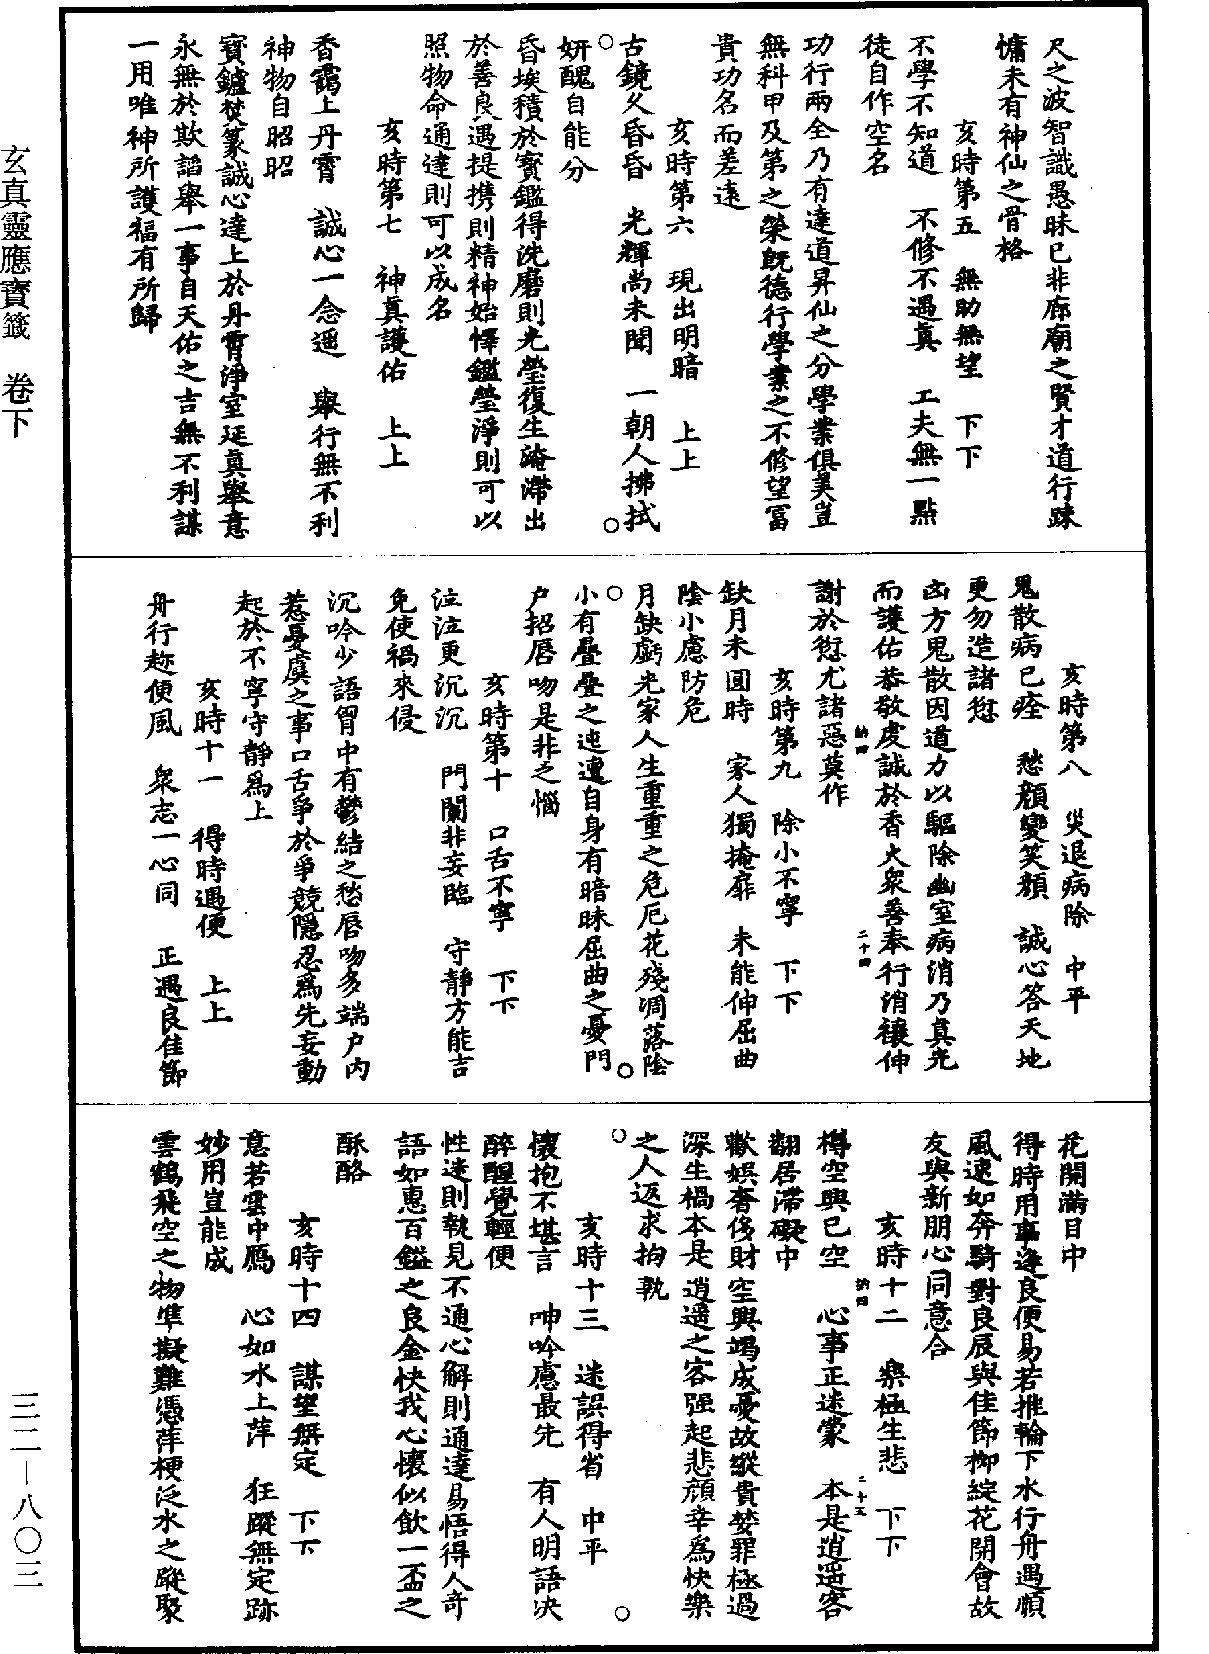 尺之波智識愚昧已非廊廟之賢才道行踈
慵未有神仙之骨格
亥時第五　無助無望　下下
不學不知道　不修不遇真　工夫無一點
徒自作空名
功行兩全乃有達道昇仙之分學業俱美豈
無科甲及第之榮既德行學業之不修望冨
貴功名而差遠
亥時第六　現出明暗　上上
古鏡久昏昏　光輝尚未聞　一朝人拂拭
妍醜自能分
昏埃積於寶鑑得洗磨則光瑩復生淹滯出
於善良遇提携則精神始懌鑑瑩淨則可以
照物命通達則可以成名
亥時第七　神真護佑　上上
香靄上丹霄　誠心一念通　舉行無不利
神物自昭昭
寶鑪焚篆誠心達上於丹霄淨室延真舉意
永無於欺謟舉一事自天佑之吉無不利謀
一用唯神所護福有所歸
亥時第八　災退病除　中平
鬼散病已痊　愁顏變笑顏　誠心答天地
更勿造諸愆
凶方鬼散因道力以驅除幽室病消乃真光
而護佑恭敬虔誠於香火衆善奉行消禳伸
謝於愆尤諸惡莫作
亥時第九　除小不寧　下下
缺月未圓時　家人獨掩扉　未能伸屈曲
陰小慮防危
月缺虧光家人生重重之危厄花殘凋落陰
小有疊疊之迍邅自身有暗昧屈曲之憂門
户招唇吻是非之惱
亥時第十　口舌不寧　下下
泣泣更沉沉　門闌非妄臨　守靜方能吉
免使禍來侵
沉吟少語胷中有鬱結之愁唇吻多端户内
惹憂虞之事口舌爭於爭競隱忍爲先妄動
起於不寧守靜爲上
亥時十一　得時遇便　上上
舟行趂便風　衆志一心同　正遇良佳節
花開滿目中
得時用事逢良便易若推輪下水行舟遇順
風速如奔騎對良辰與佳節柳綻花開會故
友與新朋心同意合
亥時十二　樂極生悲　下下
樽空興已空　心事正迷蒙　本是逍遥客
翻居滯礙中
歡娛奢侈財空興竭成憂故縱貴婪罪極過
深生禍本是逍遥之客强起悲顏幸爲快樂
之人返求拘執
亥時十三　迷誤得省　中平
懷抱不堪言　呻吟慮最先　有人明語决
醉醒覺輕便
性迷則執見不通心解則通達易悟得人奇
語如惠百鎰之良金快我心懷似飲一盃之
酥酪
亥時十四　謀望無定　下下
意若雲中鴈　心如水上萍　狂蹤無定跡
妙用豈能成
雲鶴飛空之物準擬難憑萍梗泛水之蹤聚
納四　二十四
納四　二十五
玄真靈應寶籤　卷下
三二—八〇三